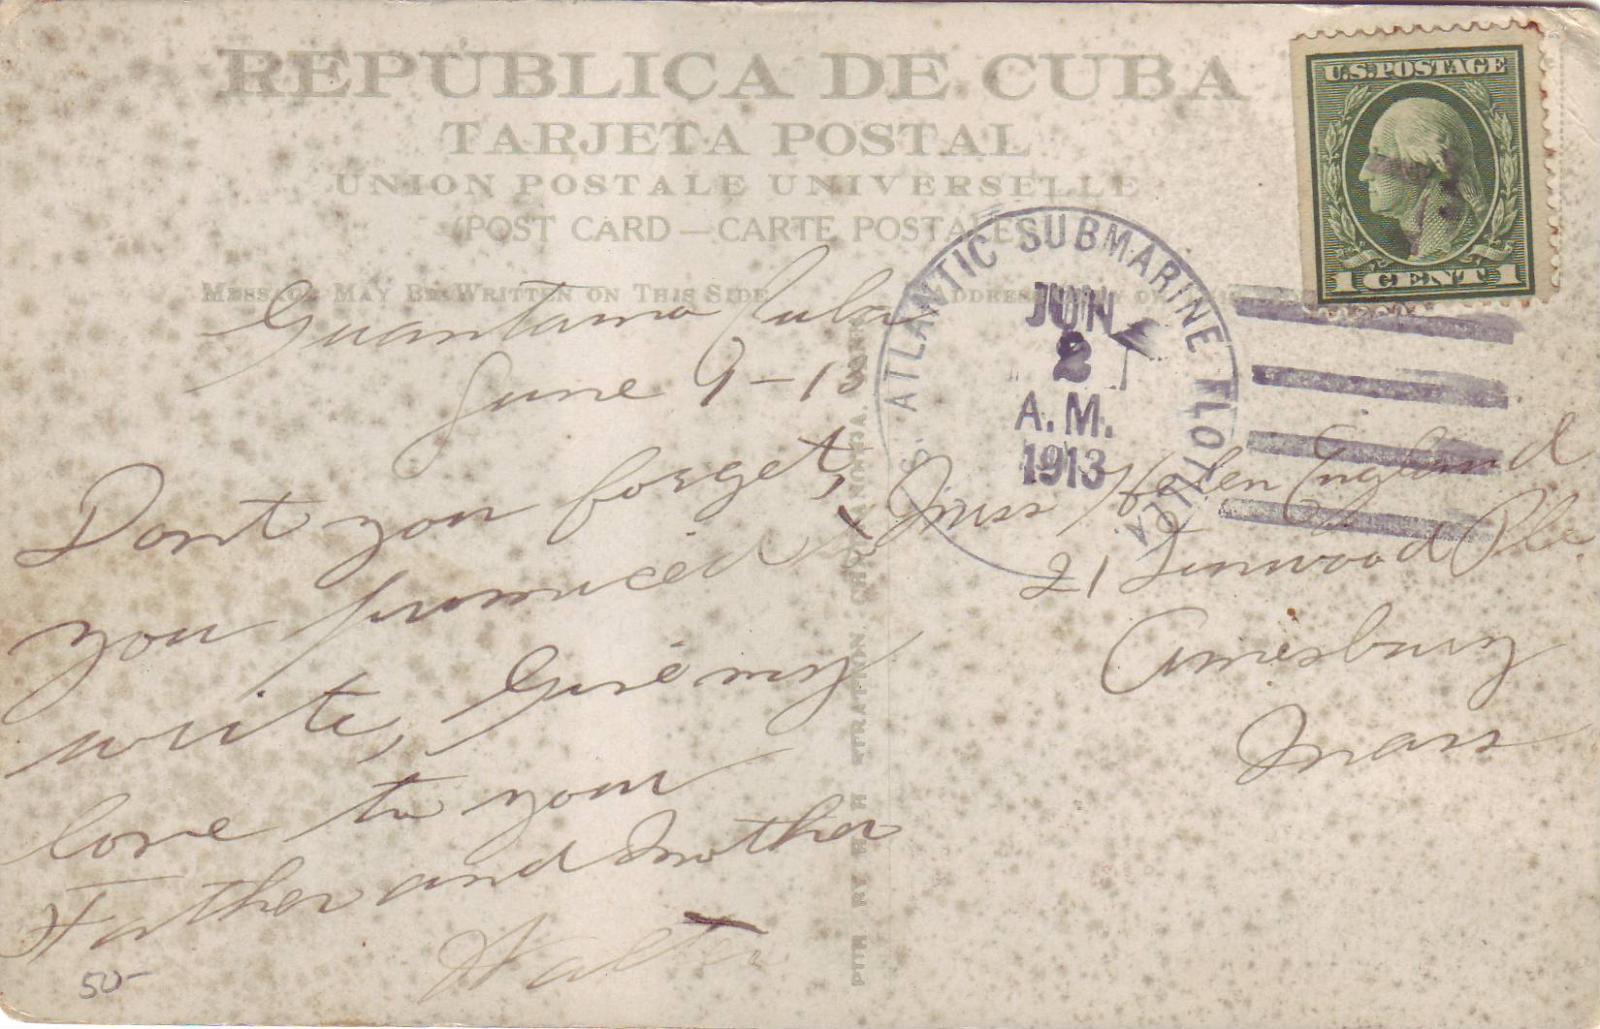 REPÚBLICA DE CUBA
TARJETA POSTAL
UNION POSTALE UNIVERSELLE
(POST CARD — CARTE POSTALE)
MESSAGE MAY BE WRITTEN ON THIS SIDE
U.S. POSTAGE
1 CENT 1
ATLANTIC SUBMARINE FLOTILLA
JUN
2
A.M.
1913
Guantamo Cuba
June 9-13
Dont you forget,
you promiced to
write, Give my
love to your
Father and Mother
Walter
Miss Helen England
21 Linwood Plce
Amesbury
Mass
50-